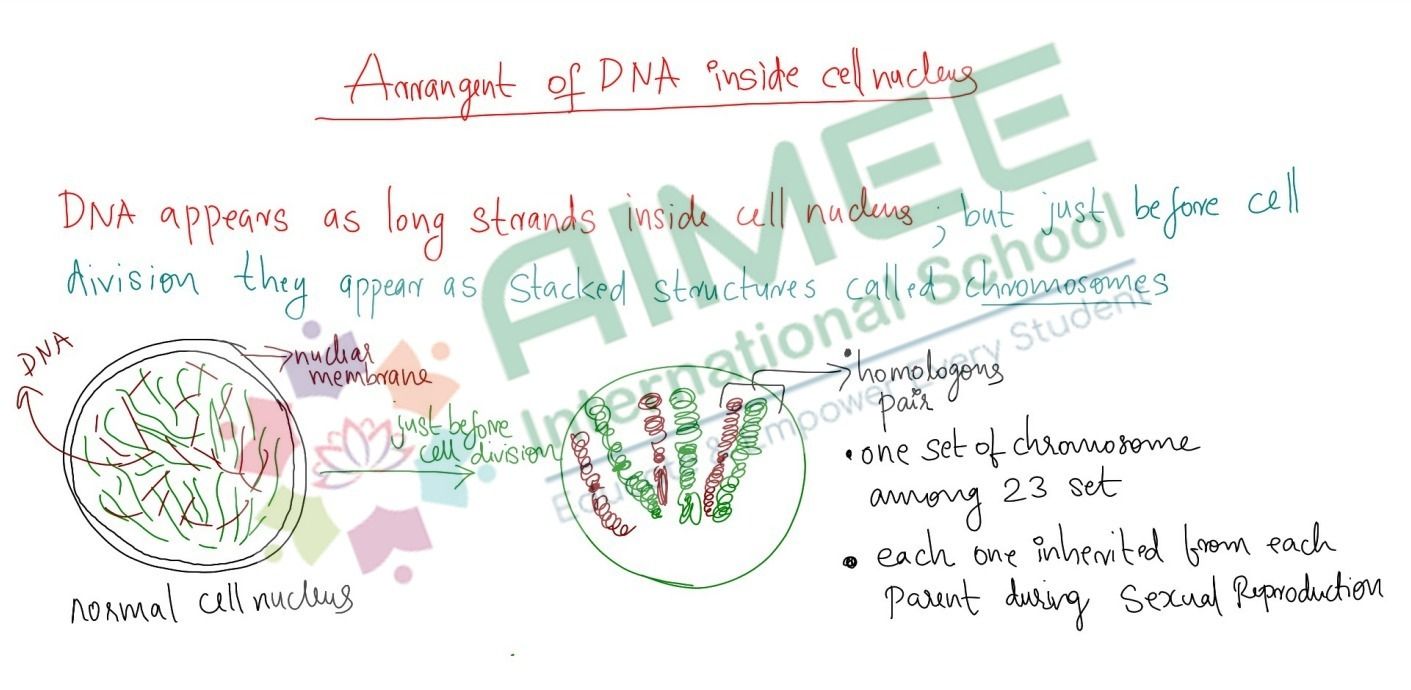 Arrangent of DNA inside cell nucleus
DNA appears as long strands inside cell nucleus ; but just before cell
division they appear as stacked structures called chromosomes
DNA
nuclear
membrane
just before
cell division
normal cell nucleus
• homologous
pair
• one set of chromosome
among 23 set
• each one inherited from each
Parent during Sexual Reproduction
AIMEE
International School
Educate & Empower Every Student